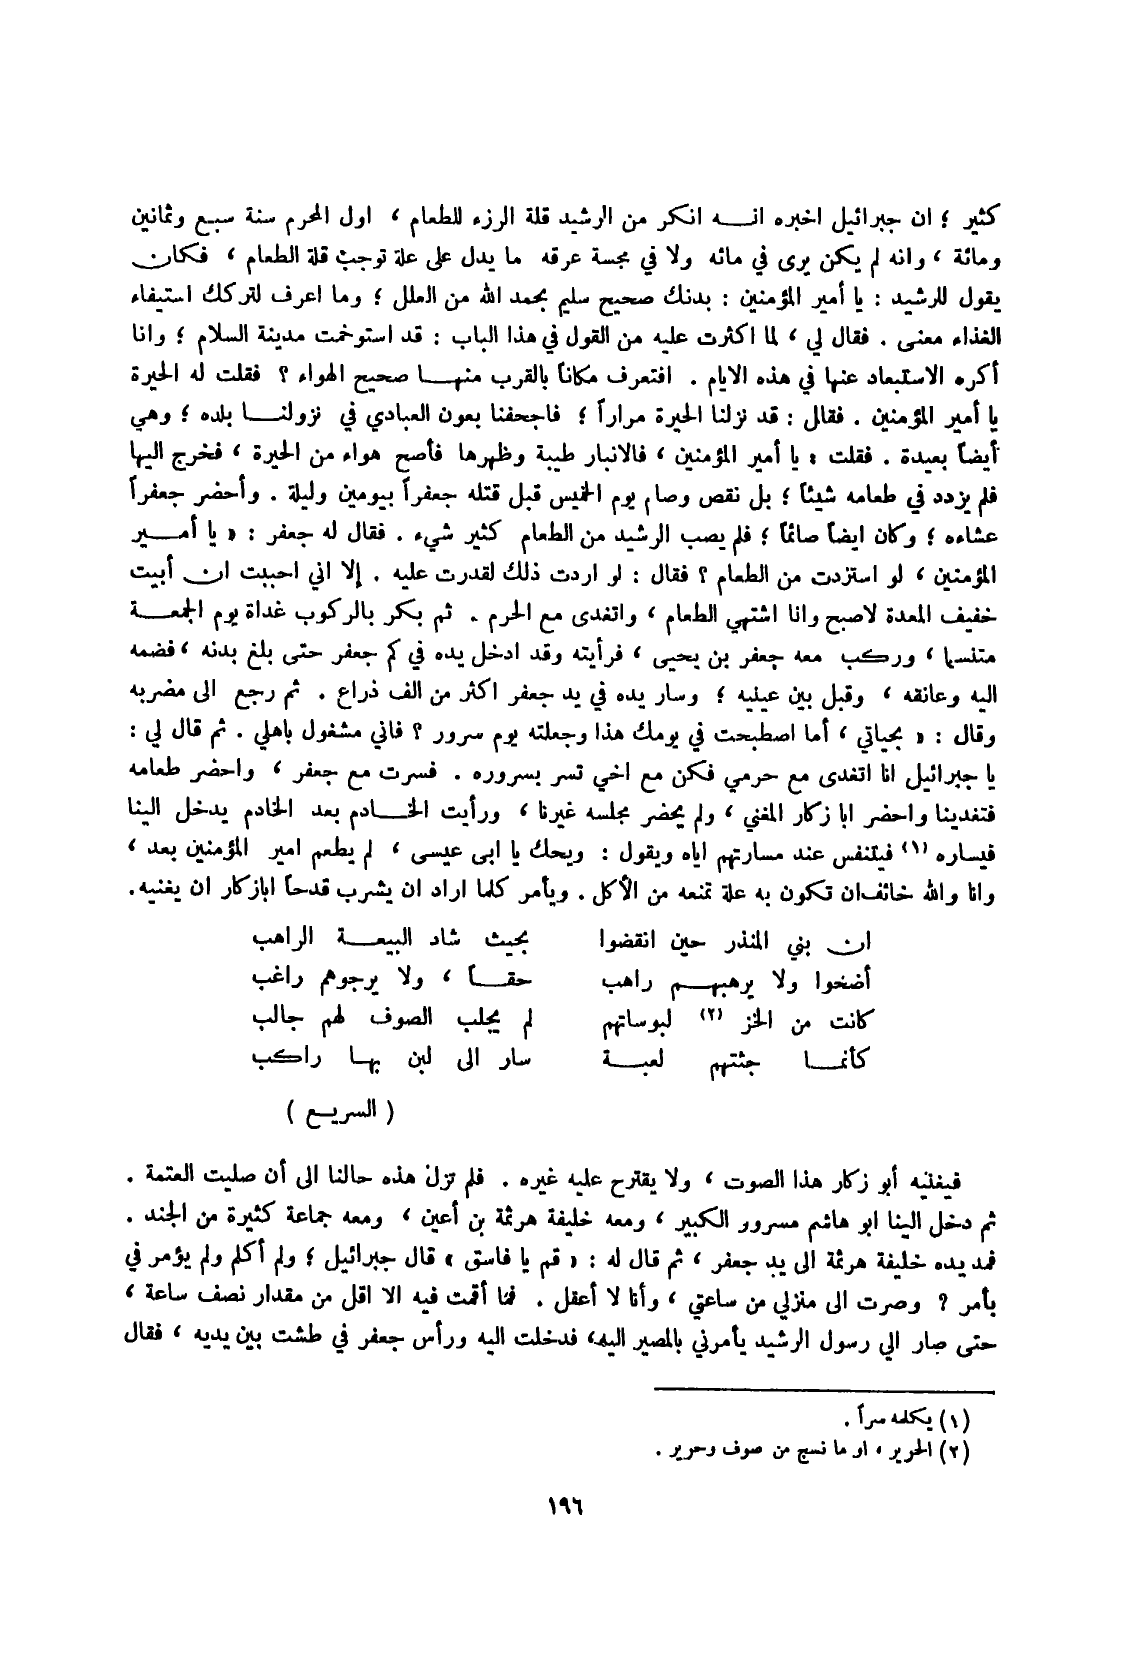 كثير ؛ ان جبرائيل اخبره انه انكر من الرشيد قلة الرزء للطعام ، اول المحرم سنة سبع وثمانين
ومائة ، وانه لم يكن يرى في مائه ولا في مجسة عرقه ما يدل على علة توجب قلة الطعام ، فكان
يقول للرشيد : يا أمير المؤمنين : بدنك صحيح سليم بحمد الله من العلل ؛ وما اعرف لتركك استيفاء
الغذاء معنى . فقال لي ، لما اكثرت عليه من القول في هذا الباب : قد استوخمت مدينة السلام ؛ وانا
أكره الاستبعاد عنها في هذه الايام . افتعرف مكاناً بالقرب منها صحيح الهواء ؟ فقلت له الحيرة
يا أمير المؤمنين . فقال : قد نزلنا الحيرة مراراً ؛ فاجحفنا بعون العبادي في نزولنا بلده ؛ وهي
أيضاً بعيدة . فقلت : يا أمير المؤمنين ، فالانبار طيبة وظهرها فأصح هواء من الحيرة ، فخرج اليها
فلم يزدد في طعامه شيئاً ؛ بل نقص وصام يوم الخميس قبل قتله جعفراً بيومين وليلة . وأحضر جعفراً
عشاءه ؛ وكان ايضاً صائماً ؛ فلم يصب الرشيد من الطعام كثير شيء . فقال له جعفر : « يا أمير
المؤمنين ، لو استزدت من الطعام ؟ فقال : لو اردت ذلك لقدرت عليه . إلا اني احببت ان أبيت
خفيف المعدة لاصبح وانا اشتهي الطعام ، واتغدى مع الحرم . ثم بكر بالركوب غداة يوم الجمعة
متنسما ، وركب معه جعفر بن يحيى ، فرأيته وقد ادخل يده في كم جعفر حتى بلغ بدنه ، فضمه
اليه وعانقه ، وقبل بين عينيه ؛ وسار يده في يد جعفر اكثر من الف ذراع . ثم رجع الى مضربه
وقال : « بحياتي ، أما اصطبحت في يومك هذا وجعلته يوم سرور ؟ فاني مشغول باهلي . ثم قال لي :
يا جبرائيل انا اتغدى مع حرمي فكن مع اخي تسر بسروره . فسرت مع جعفر ، واحضر طعامه
فتغدينا واحضر ابا زكار المغني ، ولم يحضر مجلسه غيرنا ، ورأيت الخادم بعد الخادم يدخل الينا
فيساره (١) فيتنفس عند مسارتهم اياه ويقول : ويحك يا ابى عيسى ، لم يطعم امير المؤمنين بعد ،
وانا والله خائف ان تكون به علة تمنعه من الأكل . ويأمر كلما اراد ان يشرب قدحاً ابازكار ان يغنيه.
ان بني المنذر حين انقضوا بحيث شاد البيعة الراهب
أضخوا ولا يرهبهم راهب حقاً ، ولا يرجوهم راغب
كانت من الخز (٢) لبوساتهم لم يجلب الصوف لهم جالب
كأنما جثتهم لعبة سار الى لبن بها راكب
( السريع )
فيغنيه أبو زكار هذا الصوت ، ولا يقترح عليه غيره . فلم تزل هذه حالنا الى أن صليت العتمة .
ثم دخل الينا ابو هاشم مسرور الكبير ، ومعه خليفة هرثمة بن أعين ، ومعه جماعة كثيرة من الجند .
فمد يده خليفة هرثمة الى يد جعفر ، ثم قال له : « قم يا فاسق » قال جبرائيل ؛ ولم أكلم ولم يؤمر في
بأمر ? وصرت الى منزلي من ساعتي ، وأنا لا أعقل . فما أقمت فيه الا اقل من مقدار نصف ساعة ،
حتى صار الي رسول الرشيد يأمرني بالمصير اليه، فدخلت اليه ورأس جعفر في طشت بين يديه ، فقال
(١) يكلمه سراً .
(٢) الحرير ، او ما نسج من صوف وحرير .
١٩٦